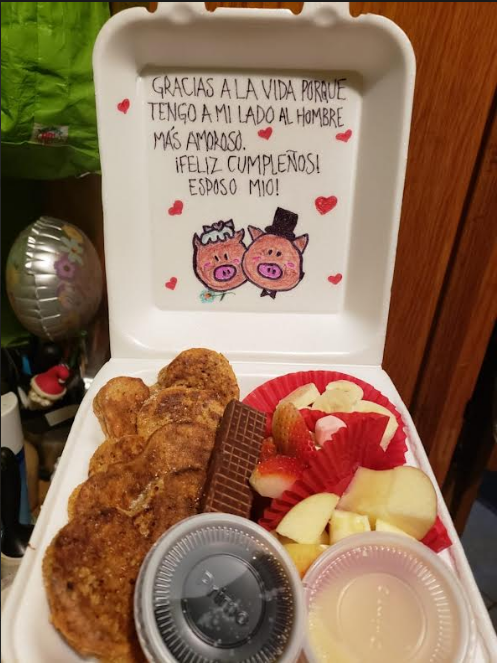 GRACIAS A LA VIDA PORQUE
TENGO A MI LADO AL HOMBRE
MÁS AMOROSO.
¡FELIZ CUMPLEÑOS!
ESPOSO MIO!